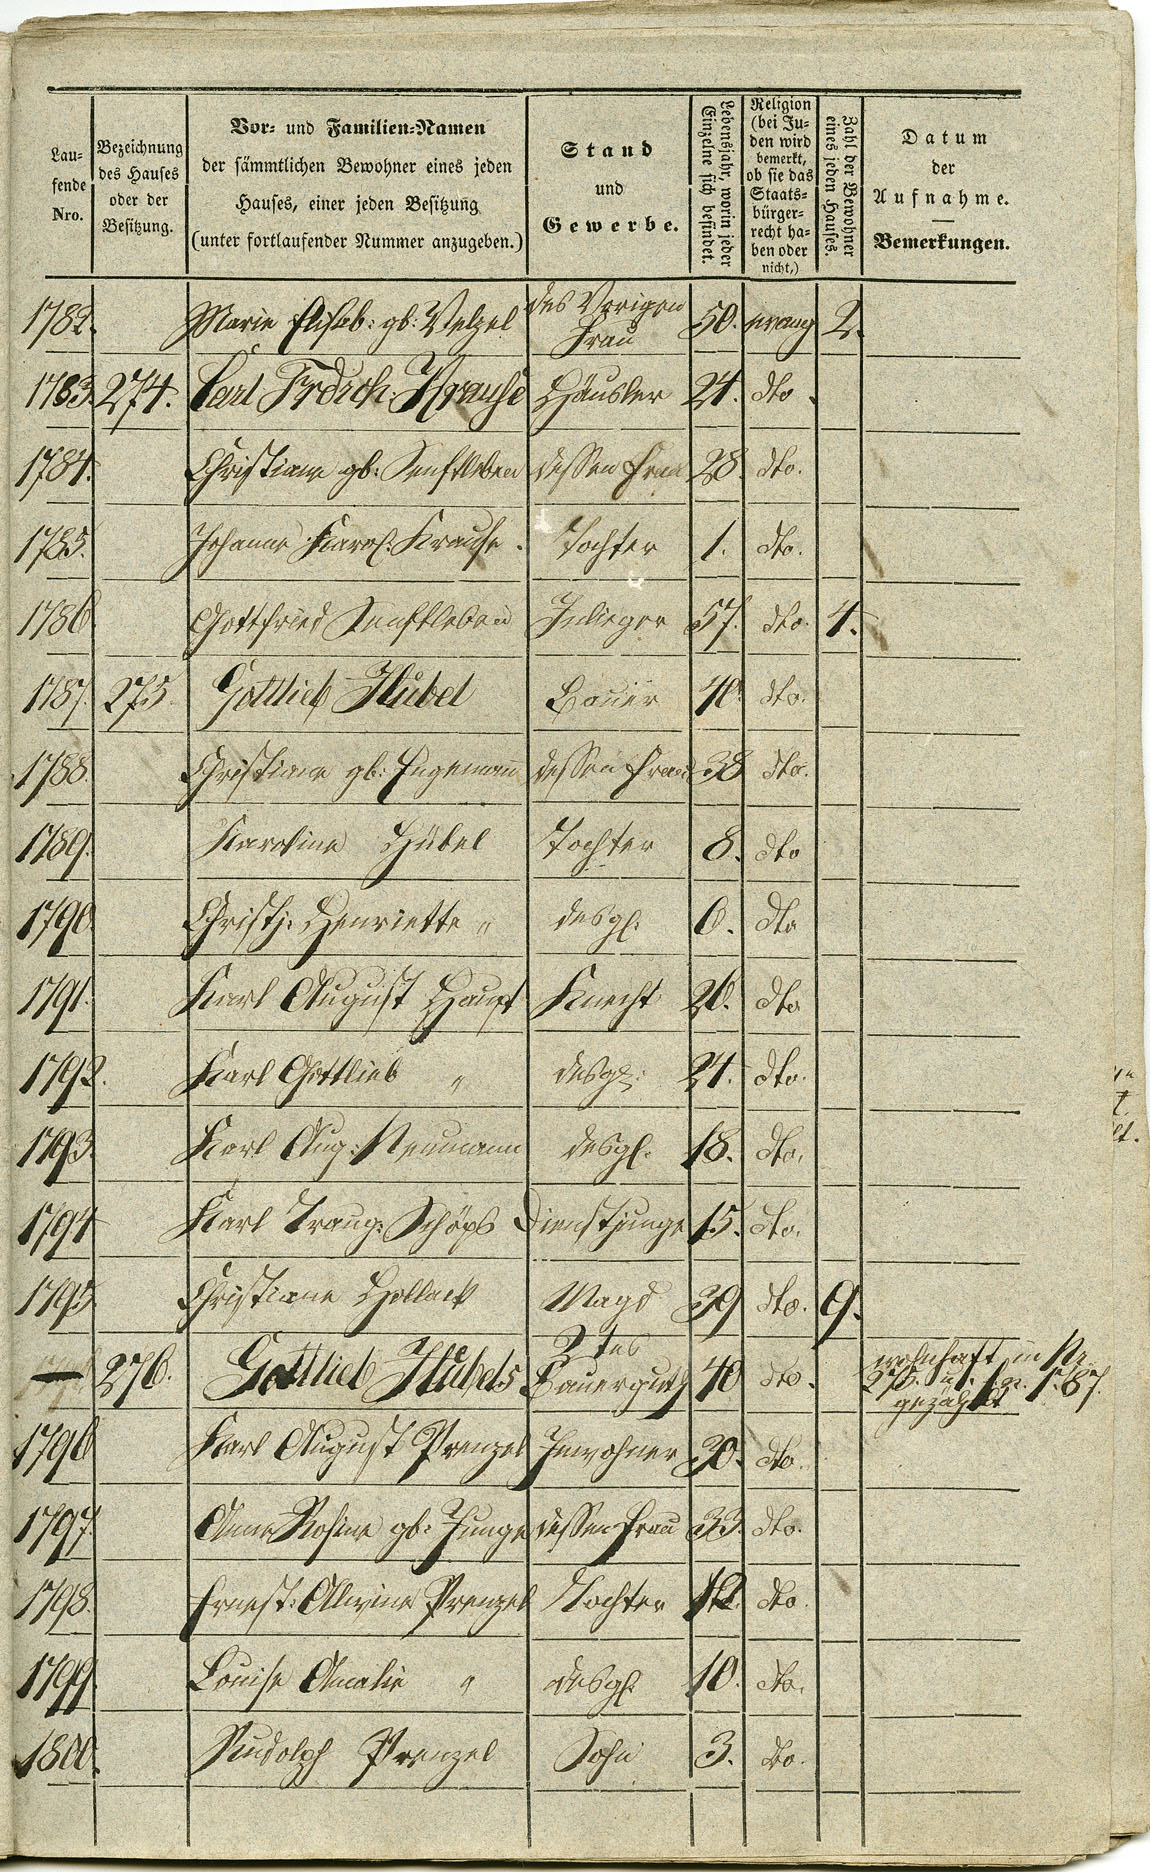 Lau-
fende
Nro.
Bezeichnung
des Hauses
oder der
Besitzung.
Vor- und Familien-Namen
der sämmtlichen Bewohner eines jeden
Hauses, einer jeden Besitzung
(unter fortlaufender Nummer anzugeben.)
Stand
und
Gewerbe.
Lebensjahr, worin jeder
Einzelne sich befindet.
Religion
(bei Ju-
den wird
bemerkt,
ob sie das
Staats-
bürger-
recht ha-
ben oder
nicht,)
Zahl der Bewohner
eines jeden Hauses.
Datum
der
Aufnahme.
Bemerkungen.
1782. Marie Elisab: gb: Velzel des Vorigen Frau 50. evang 2.
1783. 274. Carl Frdrch. Krause Häusler 24. dto.
1784. Christiane gb: Senftleben dessen Frau 28. dto.
1785. Johanne Karol. Krause. Tochter 1. dto.
1786 Gottfried Senftleben Inlieger 57. dto. 4.
1787. 275. Gottlieb Hübel Bauer 40. dto.
1788. Christiane gb: Engemann dessen Frau 38 dto.
1789. Karoline Hübel Tochter 8. dto
1790. Christj: Henriette " desgl. 6. dto
1791. Karl August Haupt Knecht 26. dto
1792. Karl Gottlieb " desgl: 24. dto.
1793. Karl Aug: Neumann desgl. 18. dto.
1794 Karl Traug: Schöps Dienstjunge 15. dto.
1795. Christiane Hollack Magd 39 dto. 9.
— 276. Gottlieb Hübels 2tes Bauerguth 40 dto. wohnhaft in No 275. u. sub 1787. gezählt
1796 Karl August Prenzel Inwohner 30. dto.
1797. Anne Rosine gb: Junge dessen Frau 33. dto.
1798. Ernest: Alwine Prenzel Tochter 12 dto.
1799. Louise Amalie " desgl. 10. dto.
1800. Rudolph Prenzel Sohn 3. dto.